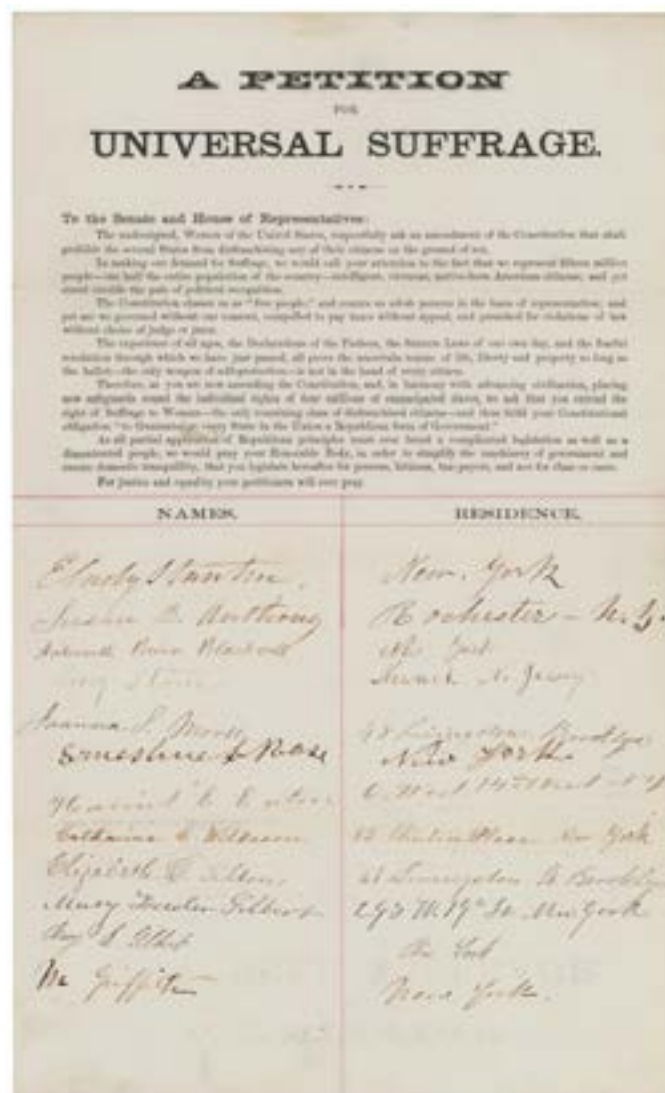 A PETITION
FOR
UNIVERSAL SUFFRAGE.
To the Senate and House of Representatives:
The undersigned, Women of the United States, respectfully ask an amendment of the Constitution that shall
prohibit the several States from disfranchising any of their citizens on the ground of sex.
In making our demand for Suffrage, we would call your attention to the fact that we represent fifteen million
people—one half the entire population of the country—intelligent, virtuous, native-born American citizens; and yet
stand outside the pale of political recognition.
The Constitution classes us as "free people," and counts us whole persons in the basis of representation; and
yet are we governed without our consent, compelled to pay taxes without appeal, and punished for violations of law
without choice of judge or juror.
The experience of all ages, the Declarations of the Fathers, the Statute Laws of our own day, and the fearful
revolution through which we have just passed, all prove the uncertain tenure of life, liberty and property so long as
the ballot—the only weapon of self-protection—is not in the hand of every citizen.
Therefore, as you are now amending the Constitution, and, in harmony with advancing civilization, placing
new safeguards round the individual rights of four millions of emancipated slaves, we ask that you extend the
right of Suffrage to Woman—the only remaining class of disfranchised citizens—and thus fulfil your Constitutional
obligation "to Guarantee to every State in the Union a Republican form of Government."
As all partial application of Republican principles must ever breed a complicated legislation as well as a
discontented people, we would pray your Honorable Body, in order to simplify the machinery of government and
ensure domestic tranquillity, that you legislate hereafter for persons, citizens, tax-payers, and not for class or caste.
For justice and equality your petitioners will ever pray.
NAMES. RESIDENCE.
E Cady Stanton. New. York
Susan B. Anthony Rochester - N.Y.
Antoinette Brown Blackwell New York
Lucy Stone Newark N. Jersey
Joanna S. Morse 48 Livingston. Brooklyn
Ernestine L Rose New York
Harriet E. Eaton 6. West 14th Street N.Y.
Catharine C Wilkeson New York
Elizabeth R. Tilton. 48 Livingston St. Brooklyn
Mary Fowler Gilbert 293 W. 19th St. New York
New York
M. Griffith New York.